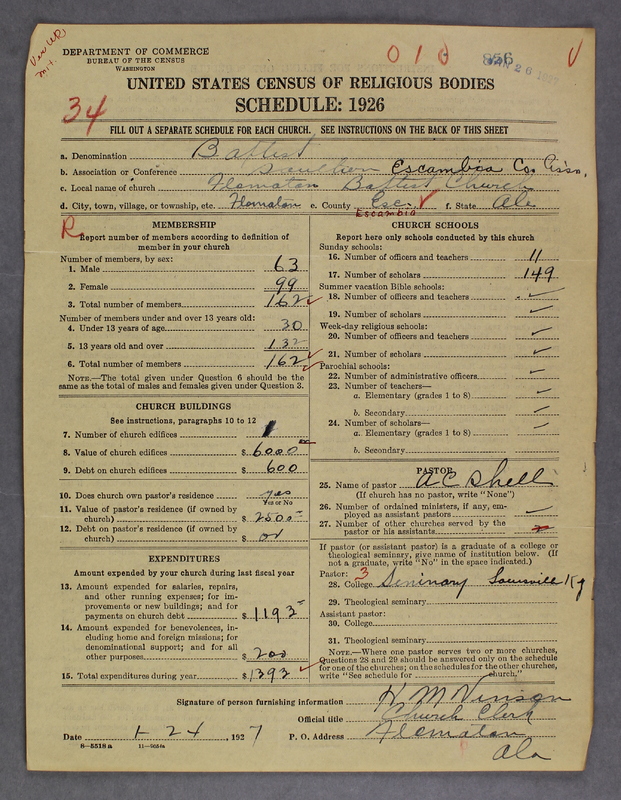 DEPARTMENT OF COMMERCE
BUREAU OF THE CENSUS
WASHINGTON
010
856
UNITED STATES CENSUS OF RELIGIOUS BODIES
SCHEDULE: 1926
34
FILL OUT A SEPARATE SCHEDULE FOR EACH CHURCH. SEE INSTRUCTIONS ON THE BACK OF THIS SHEET
a. Denomination Baptist
b. Association or Conference Southern Escambia Co. Asso.
c. Local name of church Flomaton Baptist Church
d. City, town, village, or township, etc. Flomaton e. County Esc. f. State Ala
Escambia
R
MEMBERSHIP
Report number of members according to definition of
member in your church
Number of members, by sex:
1. Male 63
2. Female 99
3. Total number of members 162
Number of members under and over 13 years old:
4. Under 13 years of age 30
5. 13 years old and over 132
6. Total number of members 162
NOTE.—The total given under Question 6 should be the
same as the total of males and females given under Question 3.
CHURCH BUILDINGS
See instructions, paragraphs 10 to 12
7. Number of church edifices 1
8. Value of church edifices $ 6000
9. Debt on church edifices $ 600
10. Does church own pastor's residence yes
Yes or No
11. Value of pastor's residence (if owned by
church) $ 2500
12. Debt on pastor's residence (if owned by
church) $
EXPENDITURES
Amount expended by your church during last fiscal year
13. Amount expended for salaries, repairs,
and other running expenses; for im-
provements or new buildings; and for
payments on church debt $ 1193
14. Amount expended for benevolences, in-
cluding home and foreign missions; for
denominational support; and for all
other purposes $ 200
15. Total expenditures during year $ 1393
CHURCH SCHOOLS
Report here only schools conducted by this church
Sunday schools:
16. Number of officers and teachers 11
17. Number of scholars 149
Summer vacation Bible schools:
18. Number of officers and teachers
19. Number of scholars
Week-day religious schools:
20. Number of officers and teachers
21. Number of scholars
Parochial schools:
22. Number of administrative officers
23. Number of teachers—
a. Elementary (grades 1 to 8)
b. Secondary
24. Number of scholars—
a. Elementary (grades 1 to 8)
b. Secondary
PASTOR
25. Name of pastor A C Shell
(If church has no pastor, write "None")
26. Number of ordained ministers, if any, em-
ployed as assistant pastors
27. Number of other churches served by the
pastor or his assistants
If pastor (or assistant pastor) is a graduate of a college or
theological seminary, give name of institution below. (If
not a graduate, write "No" in the space indicated.)
Pastor: 3
28. College Seminary Louisville Ky
29. Theological seminary
Assistant pastor:
30. College
31. Theological seminary
NOTE.—Where one pastor serves two or more churches,
Questions 28 and 29 should be answered only on the schedule
for one of the churches; on the schedules for the other churches,
write "See schedule for church."
Signature of person furnishing information H M Vinson
Official title Church Clerk
Date 1-24, 1927 P. O. Address Flomaton
Ala
8—5518a 11—9054a